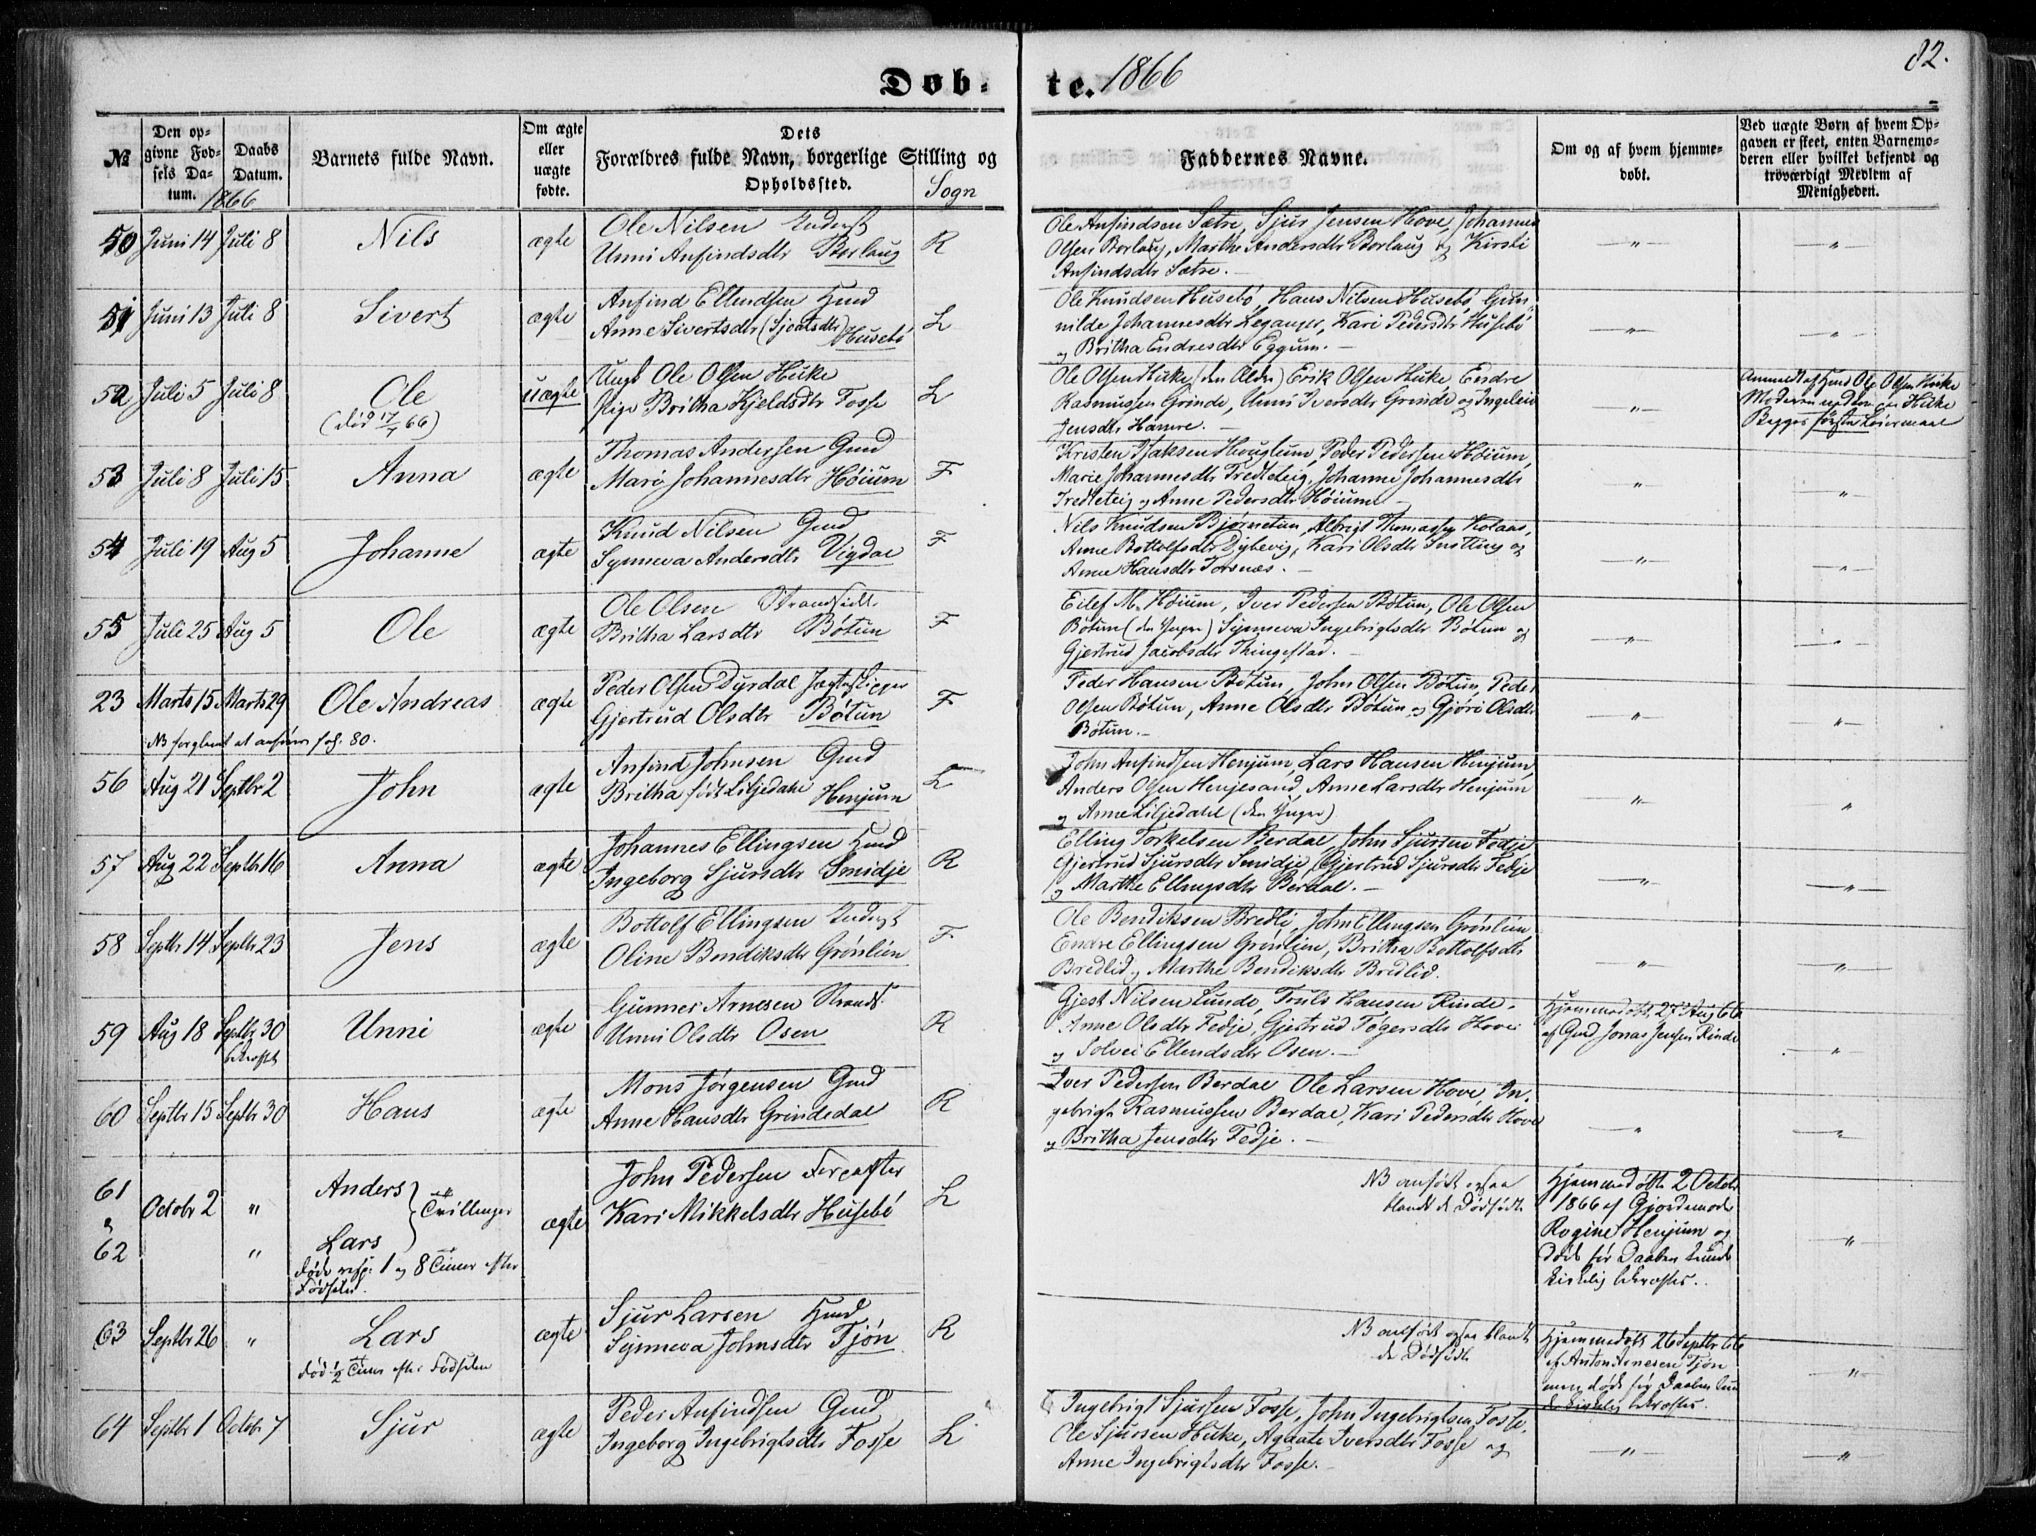 82.
Døb-te. 1866
№
Den op-
givne Fød-
sels Da-
tum.
Daabs
Datum.
1866
Barnets fulde Navn.
Om ægte
eller
uægte
fødte.
Dets
Forældres fulde Navn, borgerlige Stilling og
Opholdssted.
Sogn
Faddernes Navne.
Om og af hvem hjemme-
døbt.
Ved uægte Børn af hvem Op-
gaven er skeet, enten Barnemo-
deren eller hvilket bekjendt og
troværdigt Medlem af
Menigheden.
50 Juni 14 Juli 8 Nils ægte Ole Nilsen
Unni Anfindsdtr Borlaug R
Ole Anfindsen Sætre, Sjur Jensen Hove, Johannes
Olsen Borlaug, Marthe Andersdtr Borlaug og Kirsti
Anfindsdtr Sætre.
51 Juni 13 Juli 8 Sivert ægte Anfind Ellendsen Gmd
Anne Sivertsdtr (Sjeatsdtr) Husebö L
Ole Knudsen Husebö, Hans Nilsen Husebö, Gun-
nilde Johannesdtr Leganger, Kari Pedersdtr Husebö
og Britha Endresdtr Eggum.
52 Juli 5 Juli 8 Ole uægte Ungk Ole Olsen Huke
(död 17/7 66) Pige Britha Kjeldsdtr Fosse L
Ole Olsen Huke (den Ældre) Erik Olsen Huke, Endre
Rasmussen Grinde, Unni Iversdtr Grinde og Ingeleiv
Jensdtr Hamre.
Anmeldt af Ole Olsen Huke
Moderen Huke
Begges første Leiermaal
53 Juli 8 Juli 15 Anna ægte Thomas Andersen Gmd
Marö Johannesdtr Höium F
Kristen Isaksen Houglum, Peder Pedersen Höium,
Marie Johannesdtr Tredteteig, Johanne Johannesdtr
Tredteteig og Anne Pedersdtr Höium
54 Juli 19 Aug 5 Johanne ægte Knud Nilsen Gmd
Synneva Andersdtr Vigdal F
Nils Knudsen Bjørnetun, Albrigt Thomassen Kolaas,
Anne Bottolfsdtr Dybevig, Kari Olsdtr og
Anne Hansdtr Torsnæs.
55 Juli 25 Aug 5 Ole ægte Ole Olsen Strandsidd.
Britha Larsdtr Bötun F
Eilef M. Höium, Iver Pedersen Bötun, Ole Olsen
Bötun (den Yngre) Synneva Ingebrigtsdtr Bötun og
Gjertrud Jacobsdtr Thingestad.
23 Marts 15 Marts 29 Ole Andreas ægte Peder Olsen Dyrdal Jægteskipper
Gjertrud Olsdtr Bötun F
NB forglemt at anføres fol. 80.
Peder Hansen Bötun, John Olsen Bötun, Peder
Olsen Bötun, Anne Olsdtr Bötun og Gjöri Olsdtr
Bötun.
56 Aug 21 Septbr 2 John ægte Anfind Johnsen Gmd
Britha født Liljedahl Henjum L
John Anfindsen Henjum, Lars Hansen Henjum,
Anders Olsen Henjesand, Anne Larsdtr Henjum
og Anne Liljedahl (den Yngre)
57 Aug 22 Septbr 16 Anna ægte Johannes Ellingsen Hmd
Ingeborg Sjursdtr Smidje R
Elling Torkelsen Berdal, John Sjursen Fedje
Gjertrud Sjursdtr Smidje, Gjertrud Sjursdtr Fedje
og Marthe Ellingsdtr Berdal.
58 Septbr 14 Septbr 23 Jens ægte Bottolf Ellingsen
Oline Bendiksdtr Grönlien F
Ole Bendiksen Bredli, John Ellingsen Grönlien
Endre Ellingsen Grönlien, Britha Bottolfsdtr
Bredlid og Marthe Bendiksdtr Bredlid.
59 Aug 18 Septbr 30 Unni ægte Gunner Arnesen Strands.
bekræftet Unni Olsdtr Osen R
Gjest Nilsen Lunde, Truls Hansen Rinde,
Anne Olsdtr Fedje, Gjertrud Tögersdtr Hove
og Solvei Ellendsdtr Osen.
Hjemmedøbt 27 Aug 66
af Gmd Jonas Jensen Rinde
60 Septbr 15 Septbr 30 Hans ægte Mons Jørgensen Gmd
Anne Hansdtr Grindedal R
Iver Pedersen Berdal, Ole Larsen Hove, In-
gebrigt Rasmussen Berdal, Kari Pedersdtr Hove
og Britha Jensdtr Fedje.
61 Octobr 2 " Anders } Tvillinger ægte John Pedersen
og Kari Mikkelsdtr Husebö L
62 " Lars
døde resp. 1 og 8 Timer efter
Fødselen
NB anført ogsaa
blandt de Dødfødte
Hjemmedøbte 2 Octobr
1866 af Gjordemoder
Rogine Henjum og
døde før Daaben kunde
kirkelig bekræftes.
63 Septbr 26 " Lars ægte Sjur Larsen Hmd
Död 1/2 Time efter Fødselen Synneva Johnsdtr Tjön R
NB anført ogsaa blandt
de Dødfødte
Hjemmedøbt 26 Septbr 66
af Anton Arnesen Tjön
men døde før Daaben kun-
de kirkelig bekræftes.
64 Septbr 1 Octobr 7 Sjur ægte Peder Anfindsen Gmd
Ingeborg Ingebrigtsdtr Fosse L
Ingebrigt Sjursen Fosse, John Ingebrigtsen Fosse,
Ole Sjursen Huke, Agaate Iversdtr Fosse og
Anne Ingebrigtsdtr Fosse.